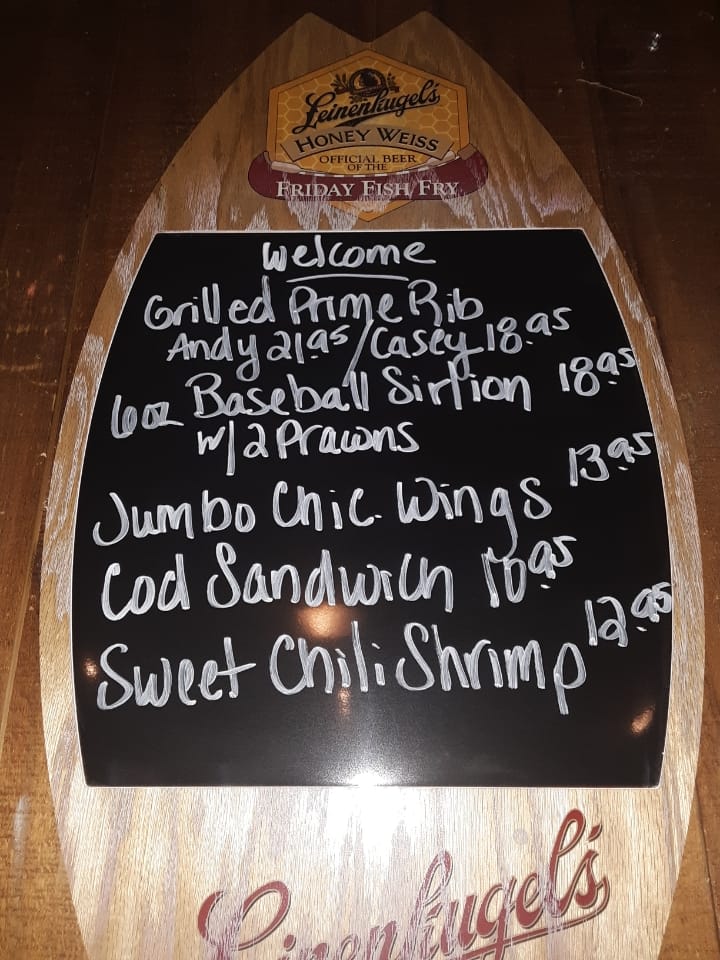 Leinenkugel's
HONEY WEISS
OFFICIAL BEER
OF THE
FRIDAY FISH FRY
Welcome
Grilled Prime Rib
Andy 21.95/Casey 18.95
6oz Baseball Sirlion 18.95
w/2 Prawns
Jumbo Chic. Wings 13.95
Cod Sandwich 10.95
Sweet Chili Shrimp 12.95
Leinenkugel's